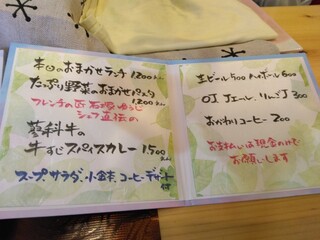 本日のおまかせランチ 1200えん
たっぷり野菜のおまかせパスタ 1200えん
フレンチの匠 石塚ゆうじ
シェフ直伝の
蓼科牛の
牛すじスパイスカレー 1500えん
スープ、サラダ、小鉢、コーヒー、デザート付
生ビール 500 ハイボール 600
OJ、Jエール、りんごJ 300
おかわりコーヒー 200
お支払いは現金のみで
お願いします